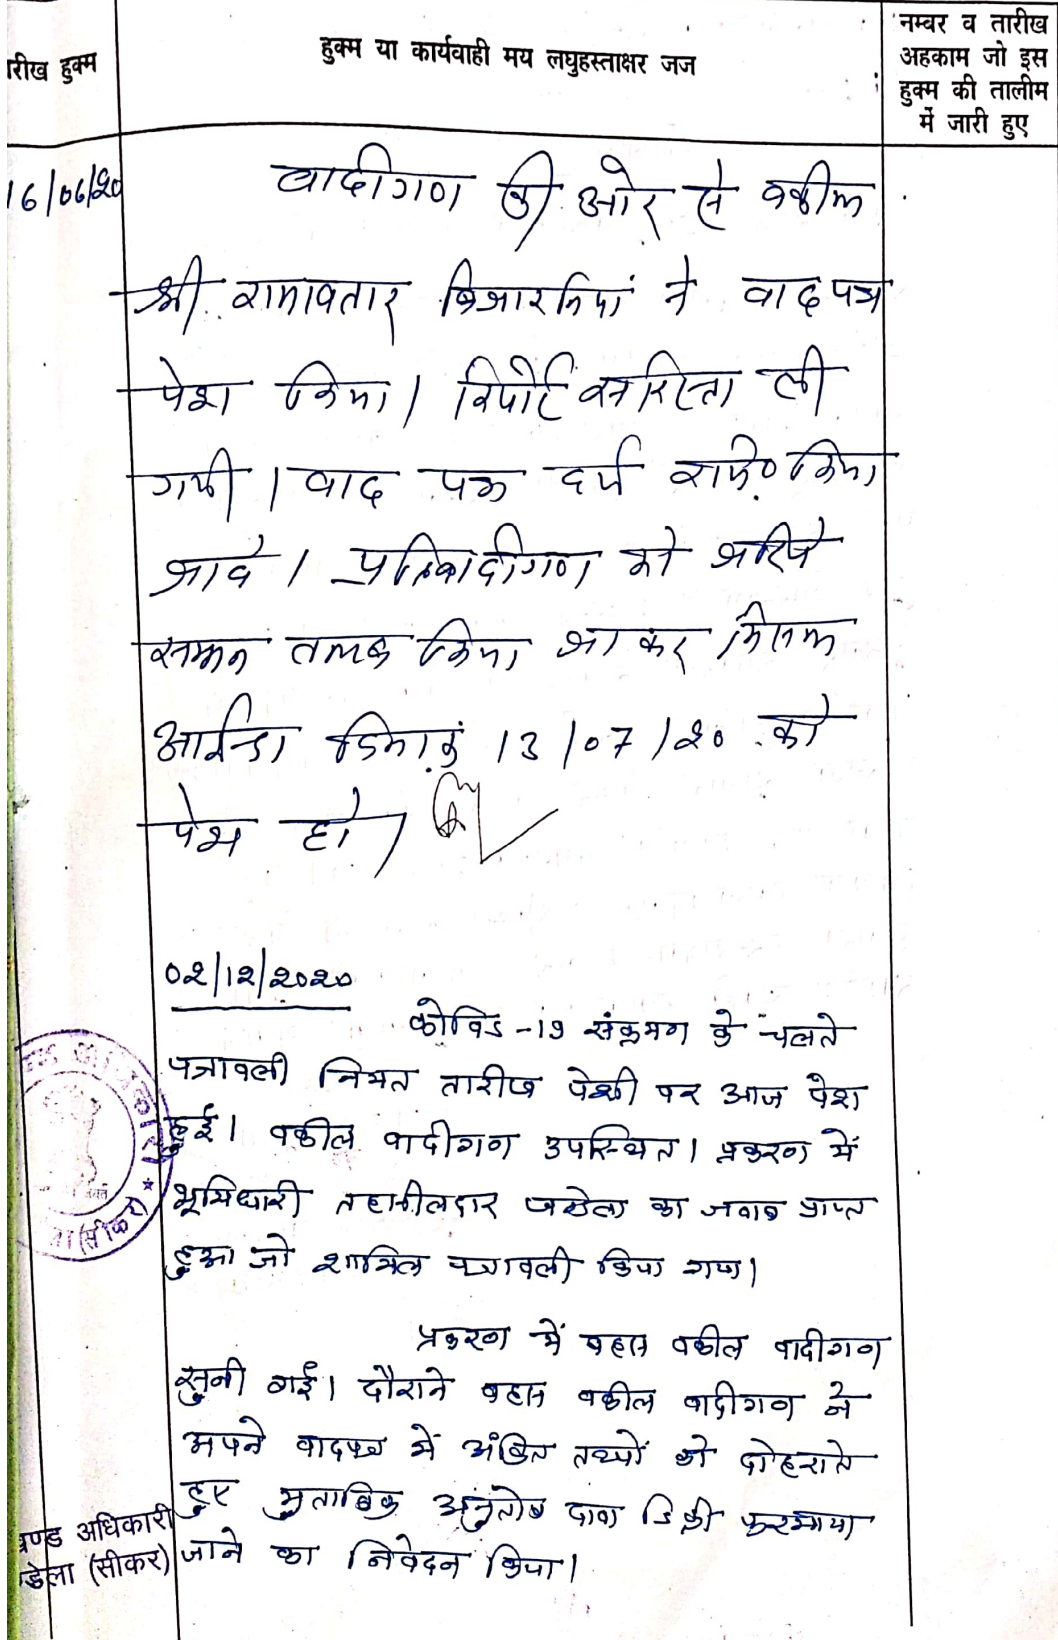 रीख हुक्म
हुक्म या कार्यवाही मय लघुहस्ताक्षर जज
नम्बर व तारीख
अहकाम जो इस
हुक्म की तालीम
में जारी हुए
16/06/20
वादीगण की ओर से वकील
श्री रामावतार बिजारणियां ने वादपत्र
पेश किया। रिपोर्ट सरिस्ता ली
गयी। वाद पत्र दर्ज राजि० किया
जावे। प्रतिवादीगण को जरिये
सम्मन तलब किया जाकर मिसल
आईन्दा दिनांक 13/07/20 को
पेश हो।
02/12/2020
कोविड -19 संक्रमण के चलते
पत्रावली नियत तारीख पेशी पर आज पेश
हुई। वकील वादीगण उपस्थित। प्रकरण में
भूमिधारी तहसीलदार खण्डेला का जवाब प्राप्त
हुआ जो शामिल पत्रावली किया गया।
प्रकरण में बहस वकील वादीगण
सुनी गई। दौराने बहस वकील वादीगण ने
अपने वादपत्र में अंकित तथ्यों को दोहराते
हुए मुताबिक अनुतोष दावा डिक्री फरमाया
जाने का निवेदन किया।
ण्ड अधिकारी
डेला (सीकर)